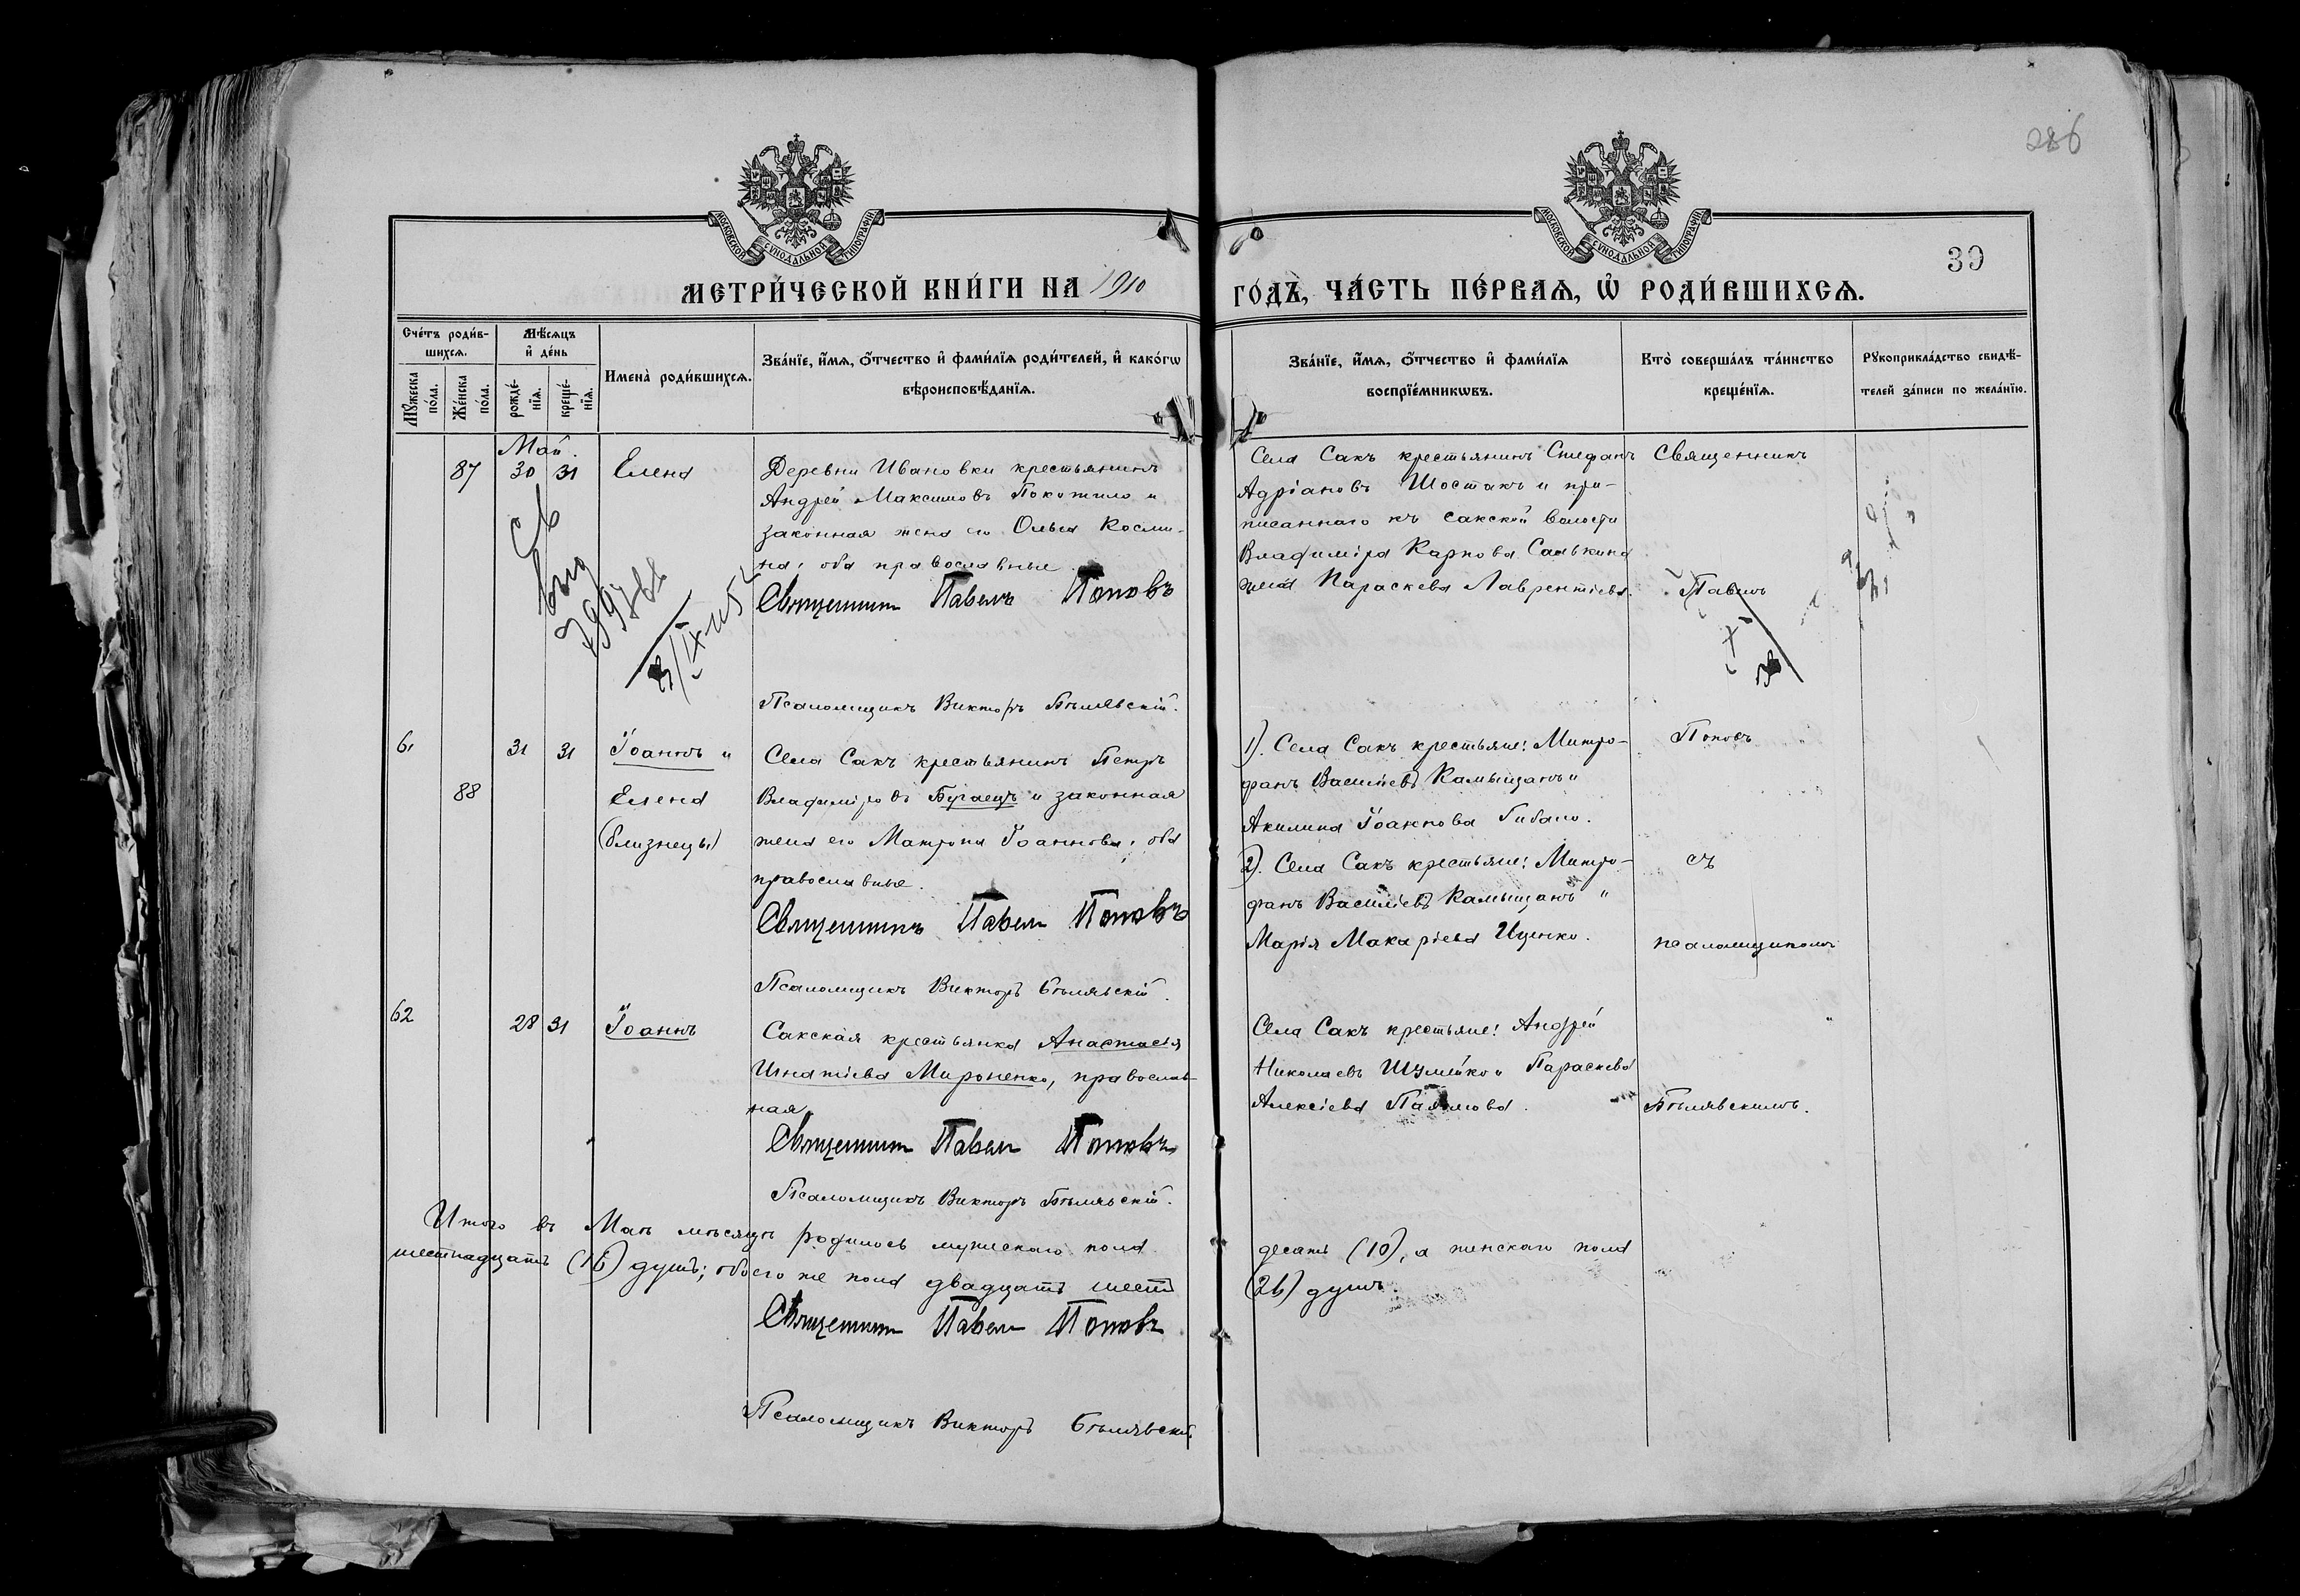 286
39
МОСКОВСКОЙ СУНОДАЛЬНОЙ ТИПОГРАФІИ
МОСКОВСКОЙ СУНОДАЛЬНОЙ ТИПОГРАФІИ
МЕТРИ́ЧЕСКОЙ КНИ́ГИ НА 1910
ГО́ДЪ, ЧА́СТЬ ПЕ́РВАѦ, Ѡ҆ РОДИ́ВШИХСѦ.
Сче́тъ роди́в-
шихсѧ.
Мꙋ́жеска по́ла.
Же́нска по́ла.
Мѣ́сѧцъ
и҆ де́нь
рожде́-
нїѧ.
креще́-
нїѧ.
Имена̀ роди́вшихсѧ.
Зва́нїе, и҆́мѧ, ѻ҆́тчество и҆ фами́лїѧ роди́телей, и҆ како́гѡ
вѣроисповѣ́данїѧ.
Зва́нїе, и҆́мѧ, ѻ҆́тчество и҆ фами́лїѧ
воспрїе́мникѡвъ.
Кто̀ соверша́лъ та́инство
креще́нїѧ.
Рꙋкоприкла́дство свидѣ́-
телей за́писи по жела́нїю.
Май.
87 30 31 Елена
Деревни Ивановки крестьянинъ
Андрей Максимовъ Покотило и
законная жена его Ольга Косми-
на, оба православные.
Священникъ Павелъ Поповъ
Псаломщикъ Викторъ Бѣлявскій.
Села Сакъ крестьянинъ Стефанъ
Адріановъ Шостакъ и при-
писаннаго къ Сакской волости
Владиміра Карпова Салькина
жена Параскева Лаврентіева.
Священникъ
Павелъ
61 31 31 Іоаннъ и
88 Елена
(близнецы)
Села Сакъ крестьянинъ Петръ
Владиміровъ Бугаецъ и законная
жена его Матрона Іоаннова, оба
православные.
Священникъ Павелъ Поповъ
Псаломщикъ Викторъ Бѣлявскій.
1). Села Сакъ крестьяне: Митро-
фанъ Васильевъ Камышанъ и
Акилина Іоаннова Гибало.
2). Села Сакъ крестьяне: Митро-
фанъ Васильевъ Камышанъ и
Марія Макаріева Иценко.
Поповъ
съ
псаломщикомъ
62 28 31 Іоаннъ
Сакская крестьянка Анастасія
Игнатіева Мироненко, православ-
ная.
Священникъ Павелъ Поповъ
Псаломщикъ Викторъ Бѣлявскій.
Села Сакъ крестьяне: Андрей
Николаевъ Шумейко и Параскева
Алексіева
Бѣлявскимъ.
Итого въ Маѣ мѣсяцѣ родилось мужескаго пола
десять (10), а женскаго пола
шестнадцать (16) душъ; обоего же пола двадцать шесть
(26) душъ.
Священникъ Павелъ Поповъ
Псаломщикъ Викторъ Бѣлявскій